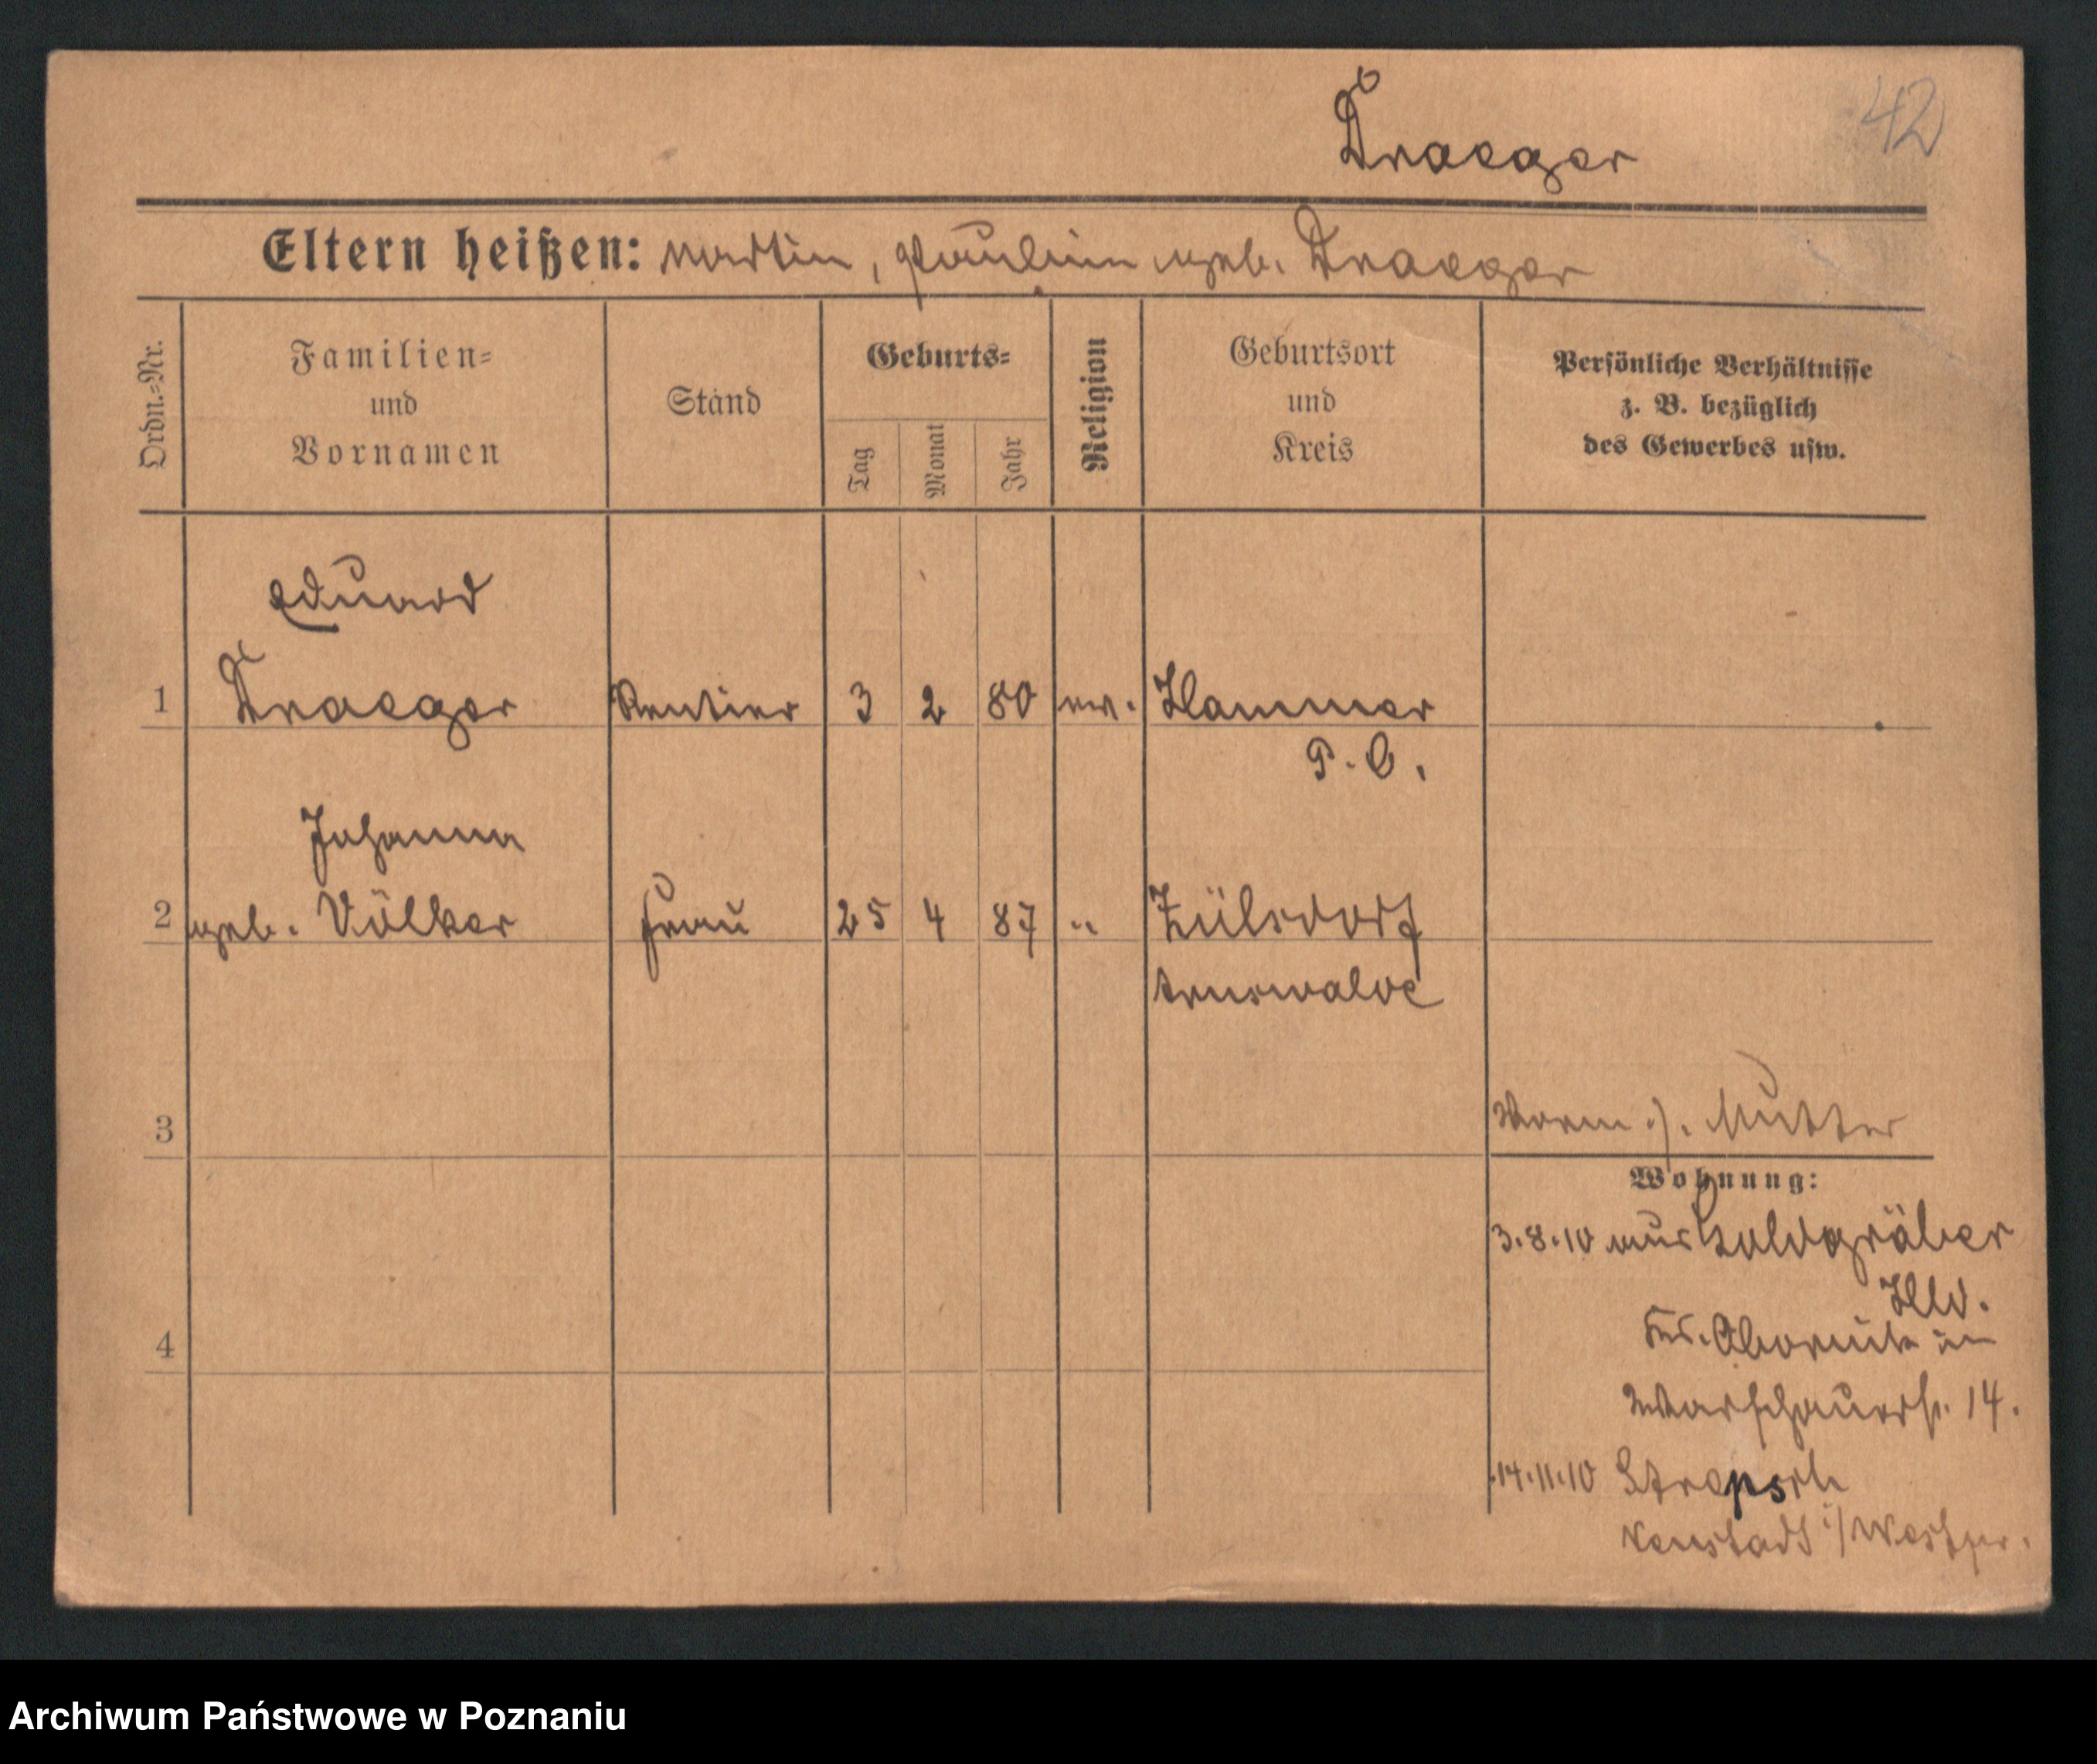 42
Draeger
Eltern heißen: Martin, Paulina geb. Draeger
Ordn.-Nr.
Familien-
und
Vornamen
Stand
Geburts-
Tag
Monat
Jahr
Religion
Geburtsort
und
Kreis
Persönliche Verhältnisse
z. B. bezüglich
des Gewerbes usw.
Eduard
1 Draeger Rentier 3 2 80 ev. Hammer
P. O.
Johanna
2 geb. Völker Frau 25 4 87 " Zülsdorf
Arnswalde
3
Mutter
Wohnung:
3.8.10 aus Goldgräber
Hld.
Krs. Obornik in
Warschauerstr. 14.
4
14.11.10
Neustadt i/Westpr.
Archiwum Państwowe w Poznaniu